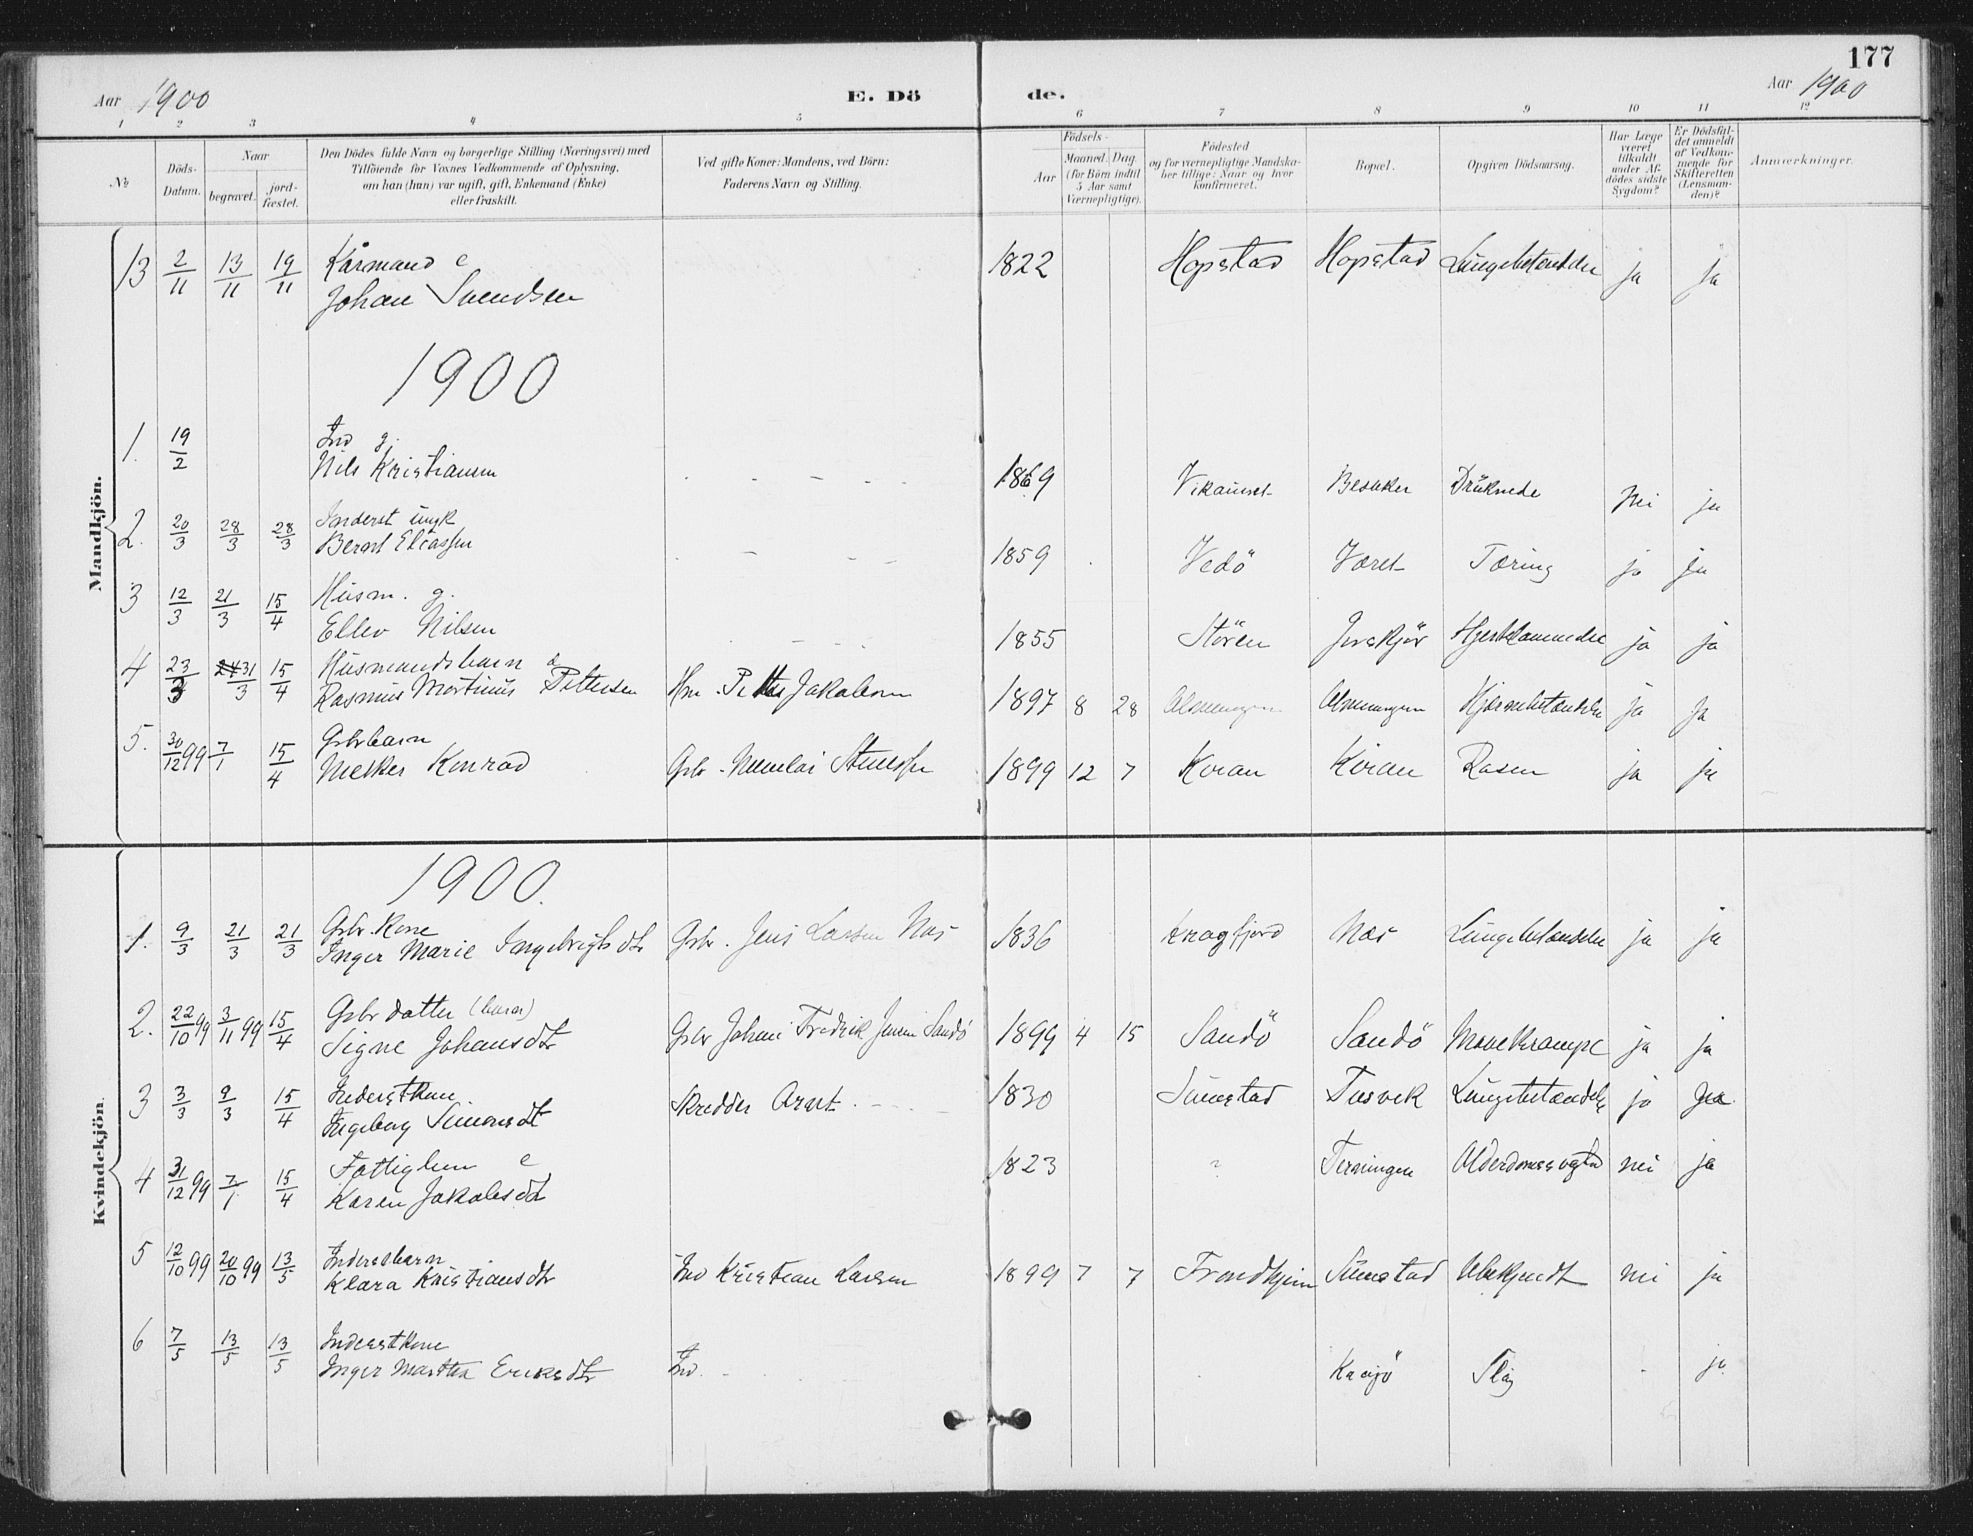 177
Aar 1900
E. Dö
de.
Aar 1900
1 2 3 4 5 6 7 8 9 10 11 12
No
Döds-Datum.
Naar
begravet.
jord-fæstet.
Den Dödes fulde Navn og borgerlige Stilling (Næringsvei) med
Tilföiende for Voxnes Vedkommende af Oplysning,
om han (hun) var ugift, gift, Enkemand (Enke)
eller fraskilt.
Ved gifte Koner: Mandens, ved Börn:
Faderens Navn og Stilling.
Födsels-
Aar
Maaned. Dag.
(for Börn indtil
5 Aar samt
Værnepligtige).
Födested
og for værnepligtige Mandska-
ber tillige: Naar og hvor
konfirmeret.
Bopæl.
Opgiven Dödsaarsag.
Har Læge
været
tilkaldt
under Af-
dödes sidste
Sygdom?
Er Dödsfal-
det anmeldt
af Vedkom-
mende for
Skifteretten
(Lensman-
den)?
Anmærkninger.
Mandkjön.
13 2/11 13/11 19/11 Kårmand e
Johan Svendsen 1822 Hopstad Hopstad Lungebetændelse ja ja
1900
1. 19/2 Ind g.
Nils Kristiansen 1869 Besaker Druknede nei ja
2. 20/3 28/3 28/3 Inderst ungk
Bernt Eliassen 1859 Vedö Været Tæring ja ja
3 12/3 21/3 15/4 Husm. g.
Ellev Nilsen 1855 Stören ja ja
4 23/3 31/3 15/4 Husmandsbarn
Rasmus Mortinus Pettersen Hm. Petter Jakobsen 1897 8 28 Almenningen Almenningen Hjernebetændelse ja ja
5. 30/12 99 7/1 15/4 Gbrbarn
Melker Konrad Gbr. 1899 12 7 Kiran Kiran Rosen ja ja
Kvindekjön.
1900.
1. 9/3 21/3 21/3 Gbr. Kone
Inger Marie Ingebrigtsdtr Gbr. Jens Larsen Næs 1836 Kragfjord Næs Lungebetændelse ja ja
2. 22/10 99 3/11 99 15/4 Gbr datter (barn)
Signe Johansdtr Gbr Johan Fredrik Jensen Sandö 1899 4 15 Sandö Sandö Mavekrampe ja ja
3 3/3 9/3 15/4 Inderstkone
Ingeborg Simonsdtr Skredder Arnt 1830 Sumstad Tusvik Lungebetændelse ja ja
4 31/12 99 7/1 15/4 Fattiglem e
Karen Jakobsdtr 1823 ? Terningen Alderdomssvaghed nei ja
5 12/10 99 20/10 99 13/5 Inderstbarn
Klara Kristiansdtr Ind Kristian Larsen 1899 7 7 Trondhjem Sumstad Ubekjendt nei ja
6 7/5 13/5 13/5 Inderstkone
Inger Martha Eriksdtr Ind. Slag ja